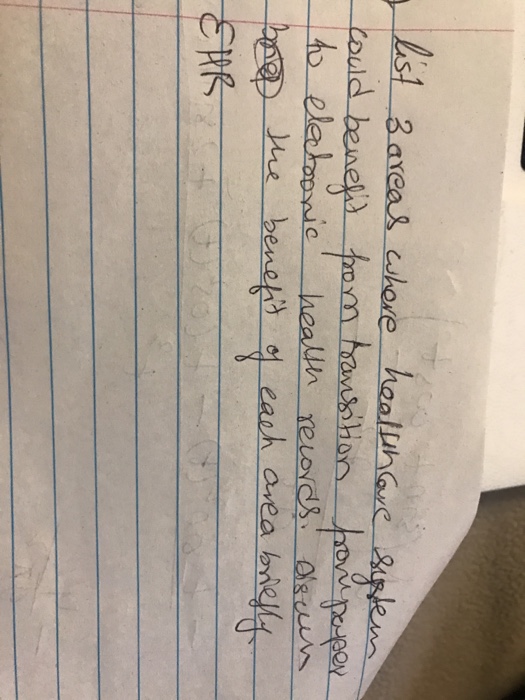 list 3 areas where healthcare system
could benefit from transition from paper
to electronic health records. discuss
the benefit of each area briefly.
EHR